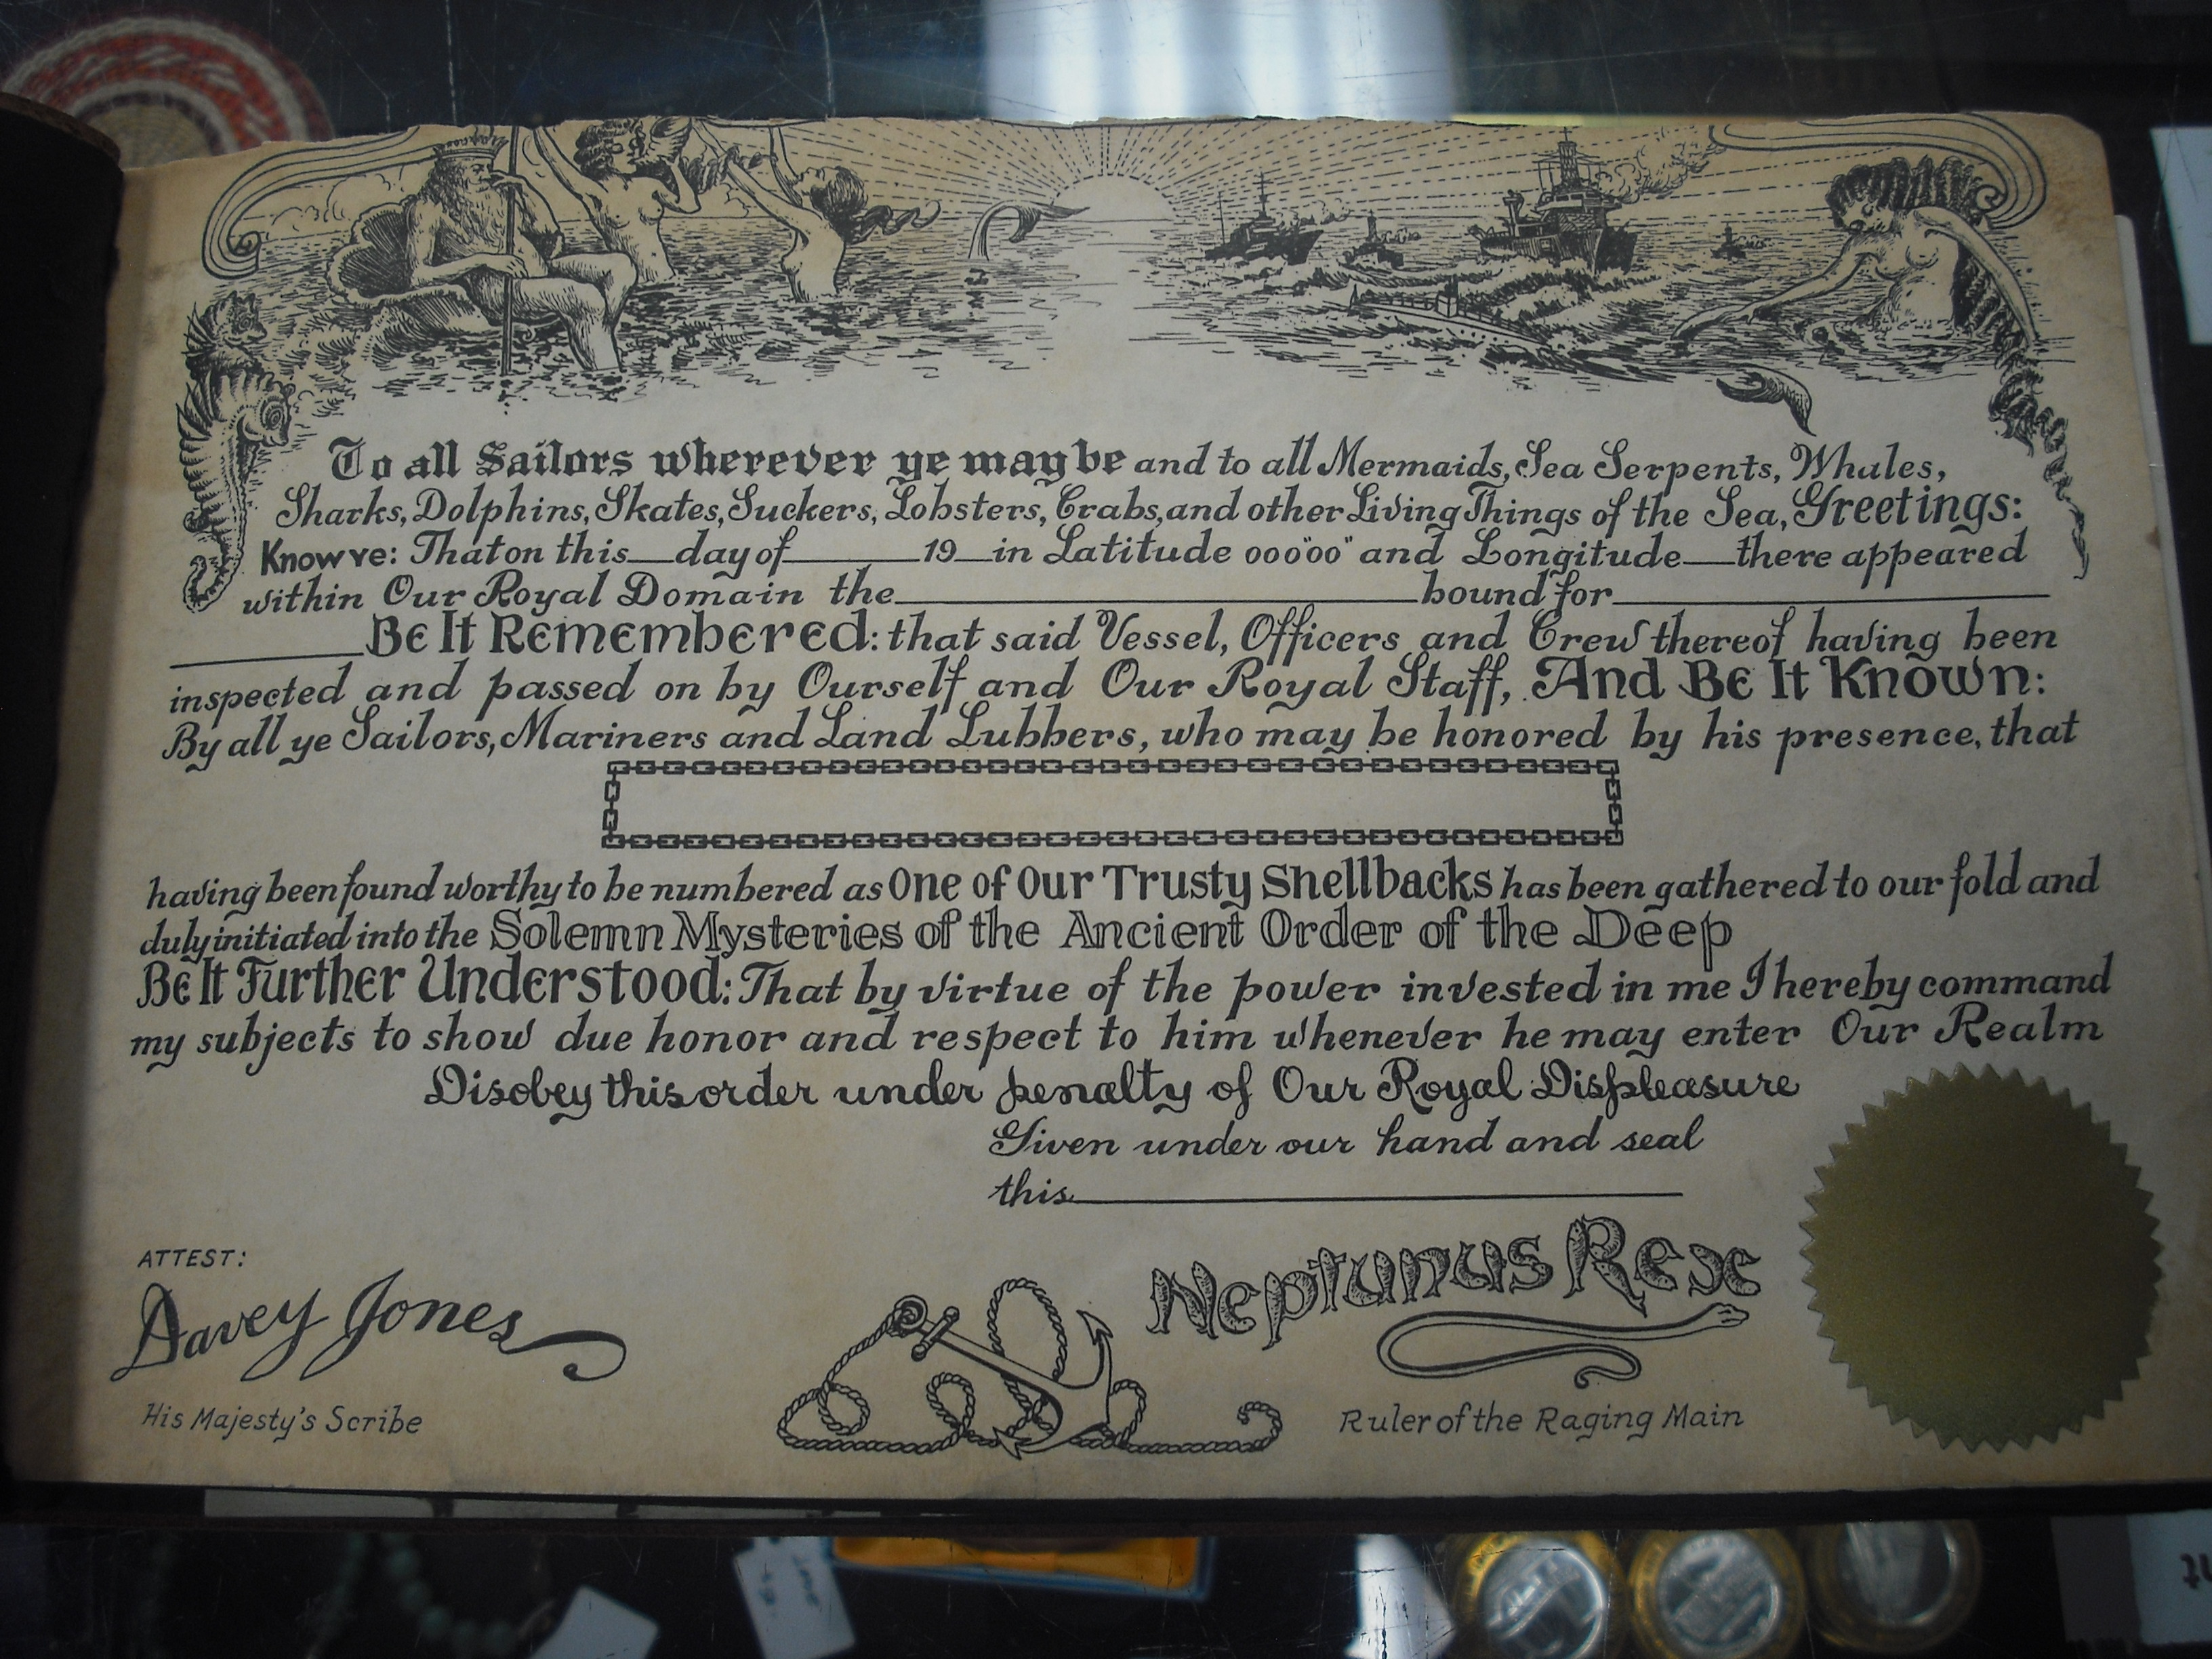 To all Sailors wherever ye may be and to all Mermaids, Sea Serpents, Whales,
Sharks, Dolphins, Skates, Suckers, Lobsters, Crabs, and other Living Things of the Sea, Greetings:
Know ye: That on this___day of______19__in Latitude 00°00'00" and Longitude___there appeared
within Our Royal Domain the____________________bound for____________________
________Be It Remembered: that said Vessel, Officers and Crew thereof having been
inspected and passed on by Ourself and Our Royal Staff, And Be It Known:
By all ye Sailors, Mariners and Land Lubbers, who may be honored by his presence, that
having been found worthy to be numbered as One of Our Trusty Shellbacks has been gathered to our fold and
duly initiated into the Solemn Mysteries of the Ancient Order of the Deep
Be It Further Understood: That by virtue of the power invested in me I hereby command
my subjects to show due honor and respect to him whenever he may enter Our Realm
Disobey this order under penalty of Our Royal Displeasure
Given under our hand and seal
this____________________
ATTEST:
Davey Jones
His Majesty's Scribe
Neptunus Rex
Ruler of the Raging Main